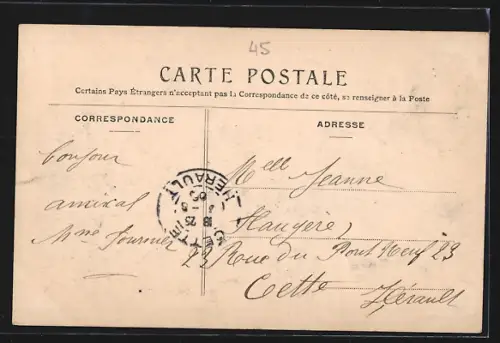 45
CARTE POSTALE
Certains Pays Étrangers n'acceptant pas la Correspondance de ce côté, se renseigner à la Poste
CORRESPONDANCE
ADRESSE
bonjour
amical
Mme Fournier
Melle Jeanne
Flaugère
23 Rue du Pont Neuf 23
Cette Hérault
CETTE
HERAULT